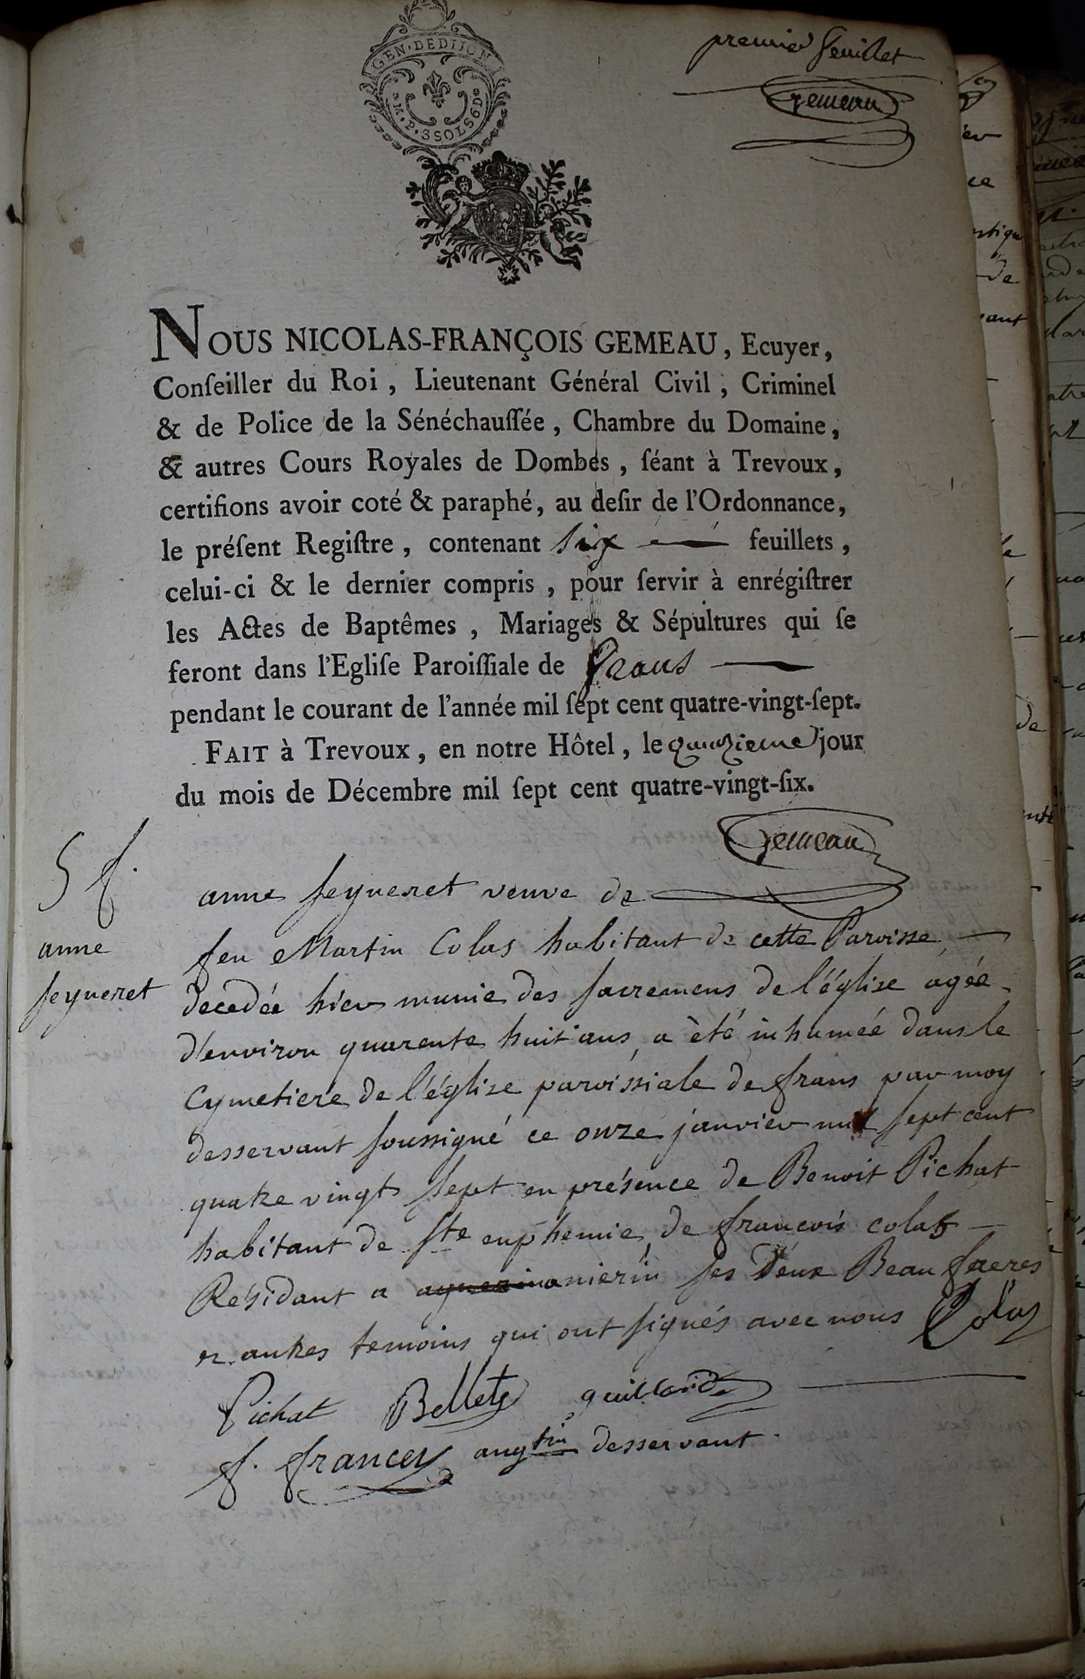 GEN·DEDIJON
M.P.3SOLS6D
premier feuillet
Gemeau
NOUS NICOLAS-FRANÇOIS GEMEAU, Ecuyer,
Conſeiller du Roi, Lieutenant Général Civil, Criminel
& de Police de la Sénéchauſſée, Chambre du Domaine,
& autres Cours Royales de Dombes, ſéant à Trevoux,
certifions avoir coté & paraphé, au deſir de l'Ordonnance,
le préſent Regiſtre, contenant Six feuillets,
celui-ci & le dernier compris, pour ſervir à enrégiſtrer
les Actes de Baptêmes, Mariages & Sépultures qui ſe
feront dans l'Egliſe Paroiſſiale de Frans
pendant le courant de l'année mil ſept cent quatre-vingt-ſept.
FAIT à Trevoux, en notre Hôtel, le quinzieme jour
du mois de Décembre mil ſept cent quatre-vingt-ſix.
Gemeau
anne
seyneret
anne seyneret veuve de
feu Martin Colas habitant de cette Paroisse
decedée hier munie des sacremens de l'église agée
d'environ quarente huit ans, a été inhumée dans le
Cymetiere de l'église paroissiale de frans par moy
desservant soussigné ce onze janvier mil sept cent
quatre vingt sept en présence de Benoit Pichat
habitant de ste euphemie, de francois colas
Résidant a nierin ses deux Beau freres
et autres temoins qui ont signés avec nous Colas
Pichat Bellet guillard
f. francey augtin desservant.